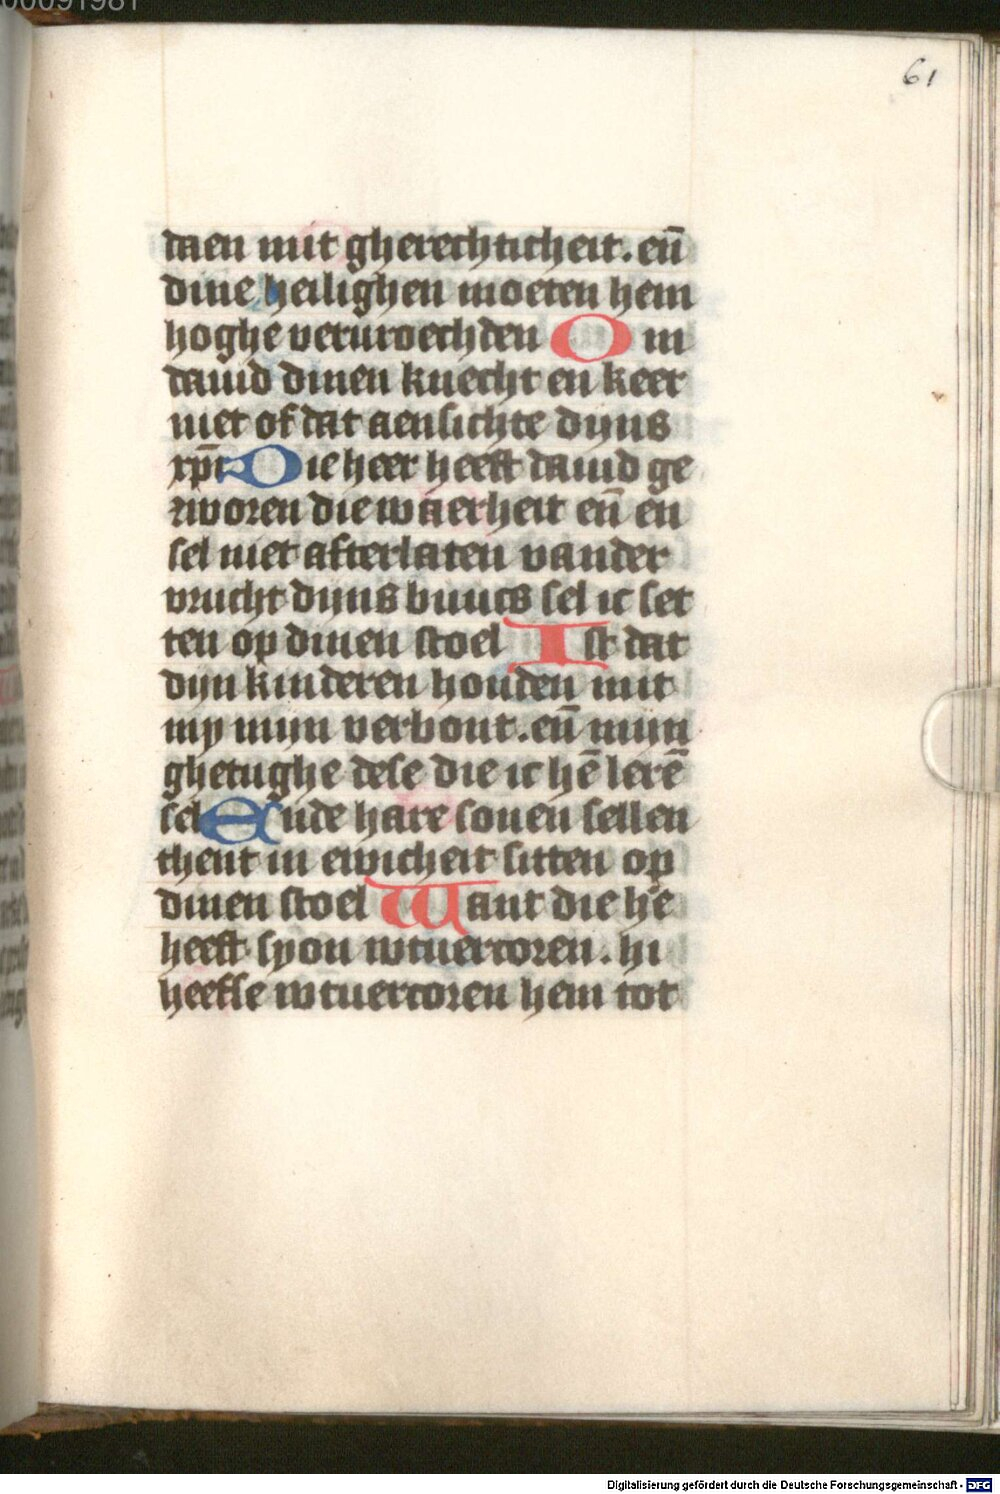 00091981
61
daen mit gherechticheit. en̄
dine heilighen moeten hem
hoghe veruroechden Om
dauid dinen knecht en keer
niet of dat aensichte dijns
xp̄i Die heer heeft dauid ge
zworen die waerheit en̄ en
sel niet afterlaten vander
vrucht dijns buucs sel ic set
ten op dinen stoel Ist dat
dijn kinderen houden mit
my mijn verbont. en̄ mijn
ghetughe dese die ic hē lerē
sel Ende hare sonen sellen
thent in ewicheit sitten op
dinen stoel Want die hē
heeft syon wtuercoren. hi
heefse wtuercoren hem tot
Digitalisierung gefördert durch die Deutsche Forschungsgemeinschaft - DFG